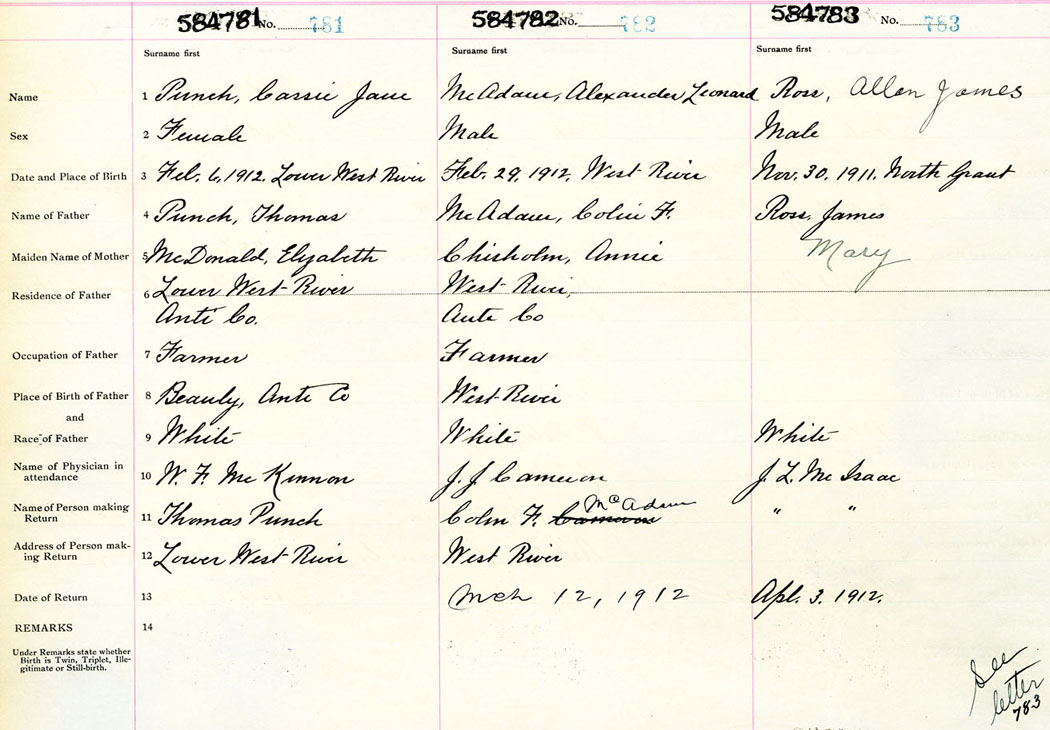 584781 No. 781 584782 No. 782 584783 No. 783
Surname first Surname first Surname first
Name 1 Punch, Cassie Jane McAdam, Alexander Leonard Ross, Allan James
Sex 2 Female Male Male
Date and Place of Birth 3 Feb. 6, 1912. Lower West River Feb. 29, 1912, West River Nov. 30. 1911. North Grant
Name of Father 4 Punch, Thomas McAdam, Colin F. Ross, James
Maiden Name of Mother 5 McDonald, Elizabeth Chisholm, Annie Mary
Residence of Father 6 Lower West River West River,
Anti Co. Anti Co
Occupation of Father 7 Farmer Farmer
Place of Birth of Father 8 Beauly, Anti Co West River
and
Race of Father 9 White White White
Name of Physician in
attendance 10 W. F. McKinnon J. J. Cameron J. L. McIsaac
Name of Person making
Return 11 Thomas Punch Colin F. Cameron McAdam " "
Address of Person mak-
ing Return 12 Lower West River West River
Date of Return 13 Mch 12, 1912 Apl. 3. 1912.
REMARKS 14
Under Remarks state whether
Birth is Twin, Triplet, Ille-
gitimate or Still-birth.
See
letter
783